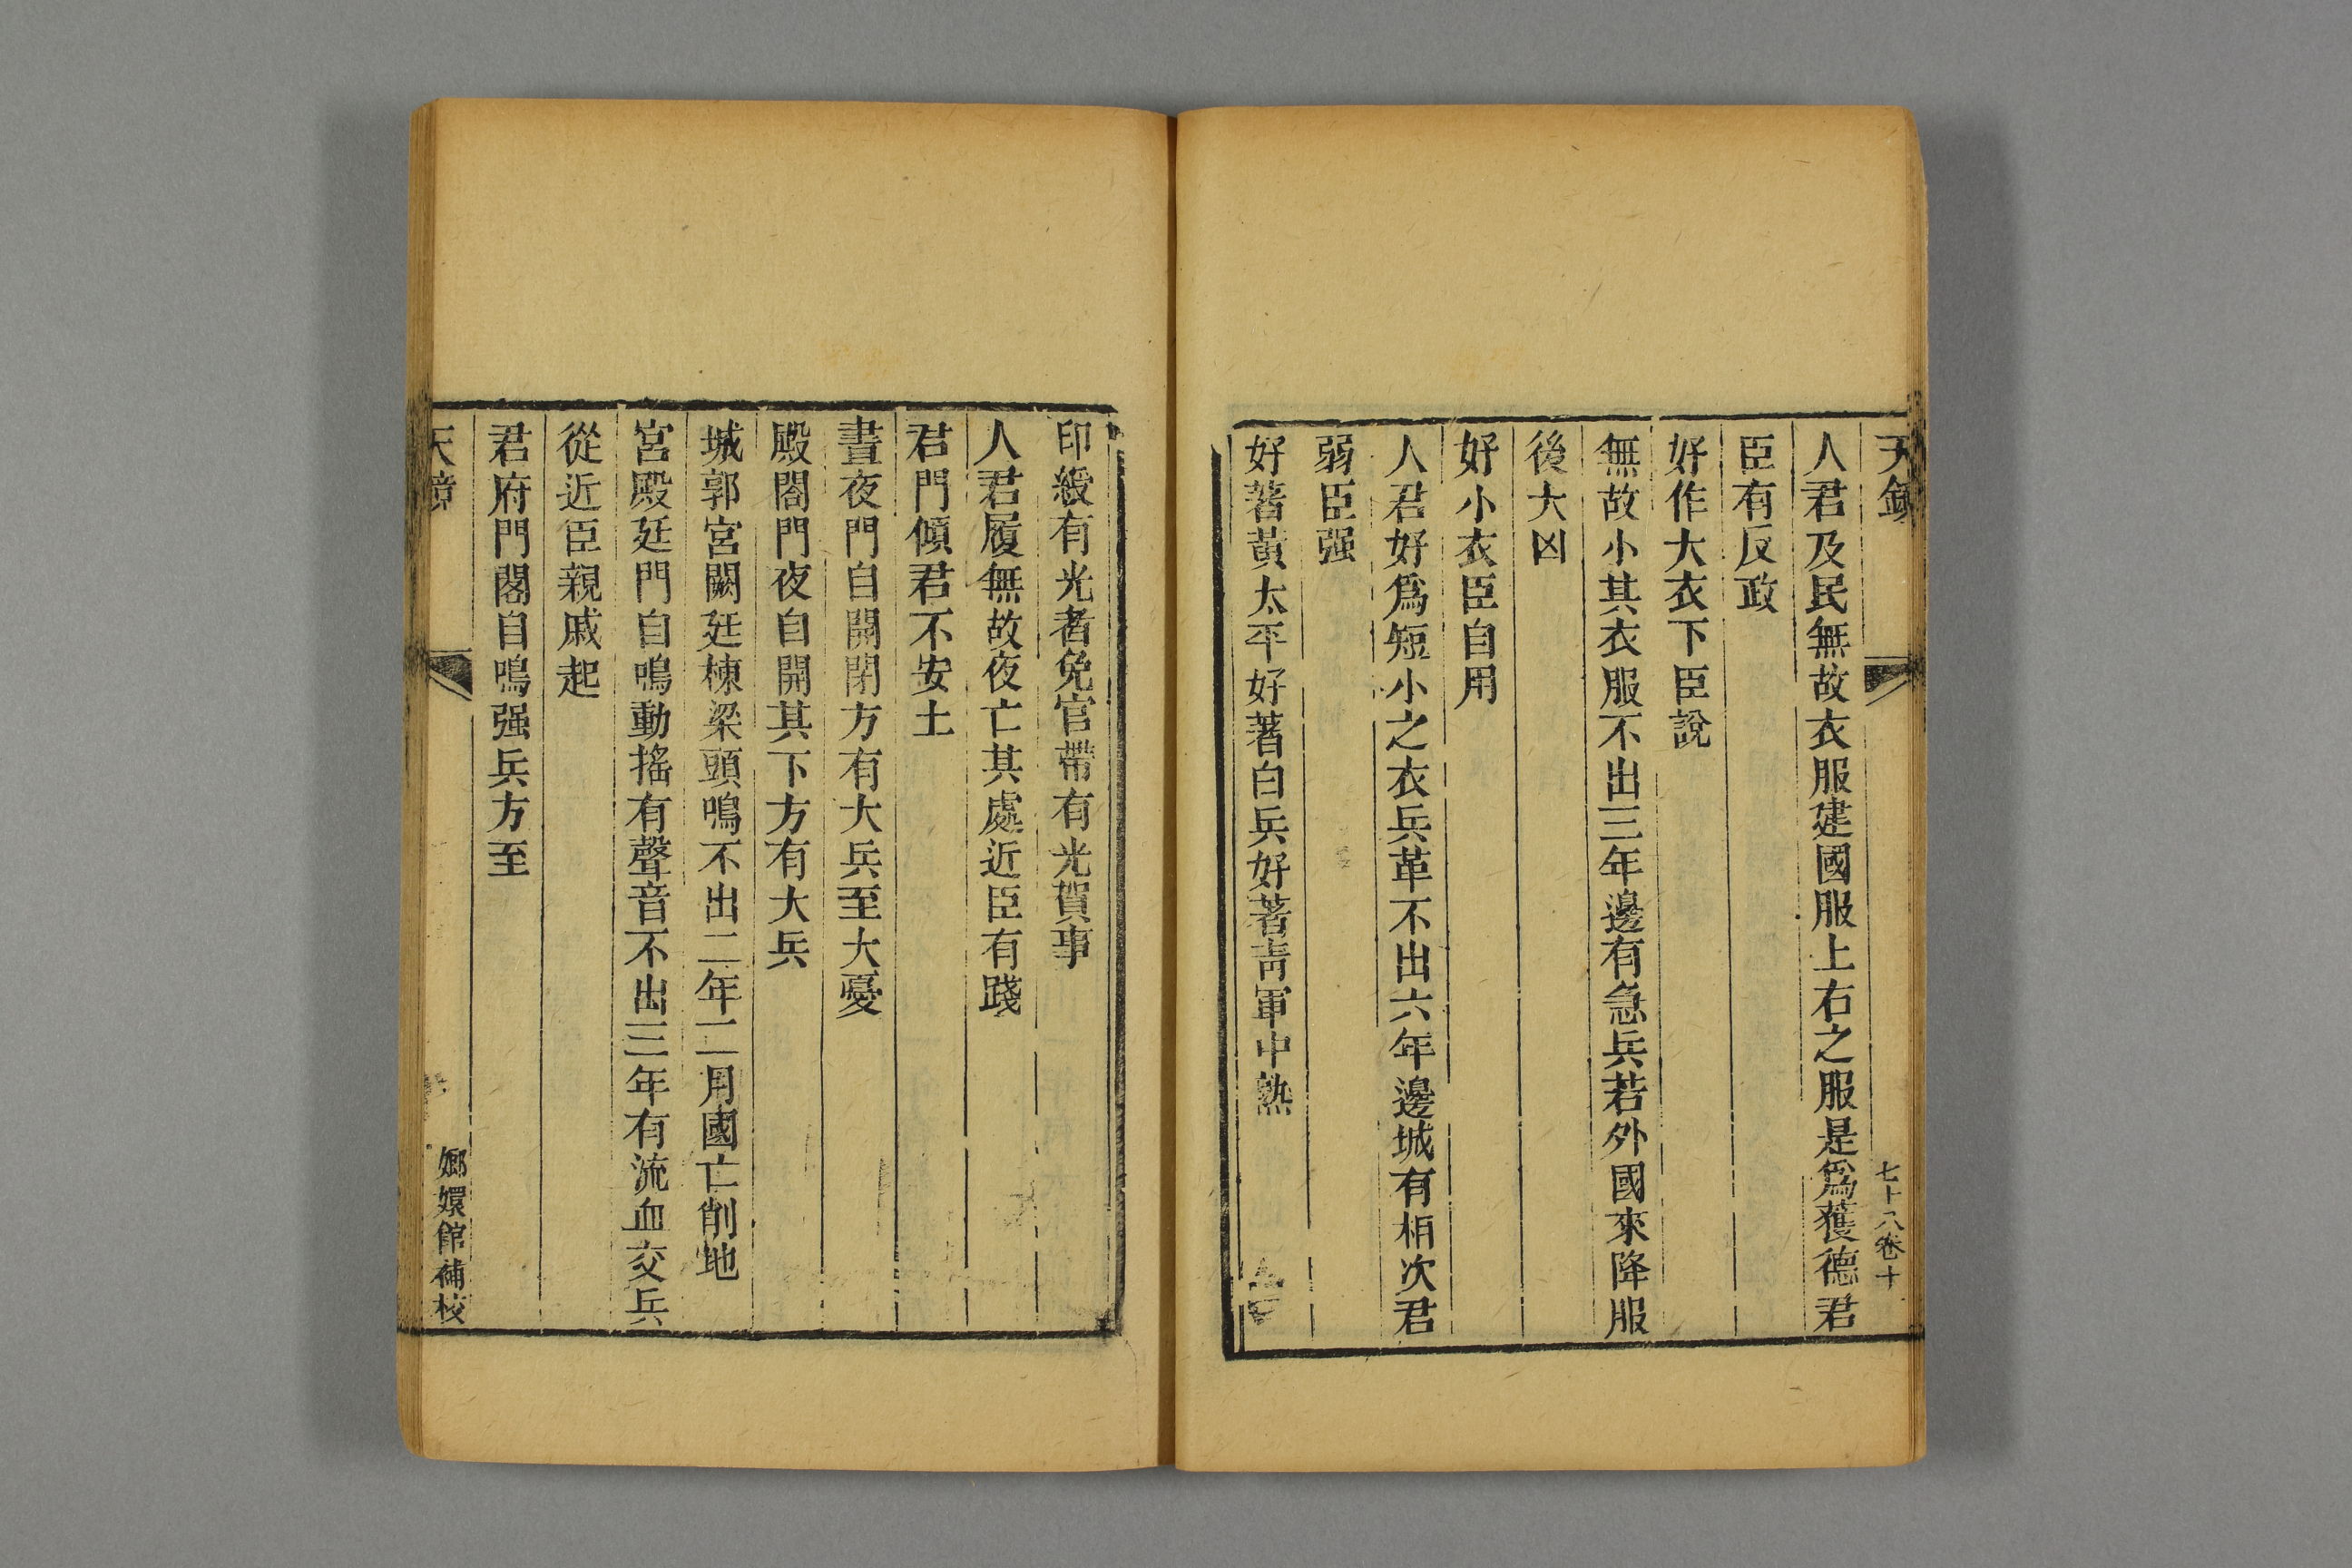 天鏡
七十八卷十
人君及民無故衣服建國服上右之服是爲獲德君
臣有反政
好作大衣下臣說
無故小其衣服不出三年邊有急兵若外國來降服
後大凶
好小衣臣自用
人君好爲短小之衣兵革不出六年邊城有相次君
弱臣强
好著黃太平好著白兵好著靑軍中熱
印綬有光者免官帶有光賀事
人君履無故夜亡其處近臣有踐
君門傾君不安土
晝夜門自開閉方有大兵至大憂
殿閤門夜自開其下方有大兵
城郭宮闕廷棟梁頭鳴不出二年二月國亡削地
宮殿廷門自鳴動搖有聲音不出三年有流血交兵
從近臣親戚起
君府門閤自鳴强兵方至
天鏡
嫏嬛館補校